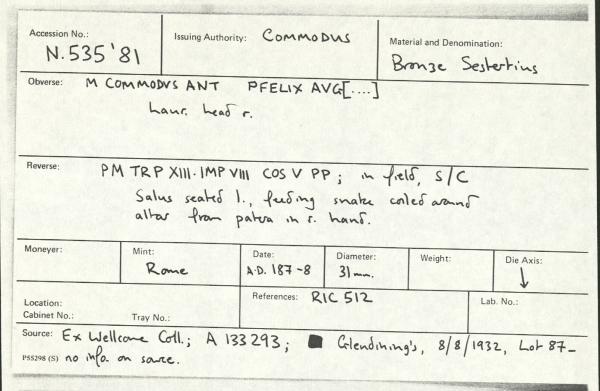 Accession No.:
N.535'81
Issuing Authority: COMMODUS
Material and Denomination:
Bronze Sestertius
Obverse: M COMMODVS ANT PFELIX AVG[....]
laur. head r.
Reverse: PM TRP XIII·IMP VIII COS V PP; in field, S/C
Salus seated l., feeding snake coiled around
altar from patera in r. hand.
Moneyer:
Mint:
Rome
Date:
A.D. 187-8
Diameter:
31mm.
Weight:
Die Axis:
↓
Location:
Cabinet No.:
Tray No.:
References: RIC 512
Lab. No.:
Source: Ex Wellcome Coll.; A 133293; Glendining's, 8/8/1932, Lot 87-
P55298 (S) no info. on source.